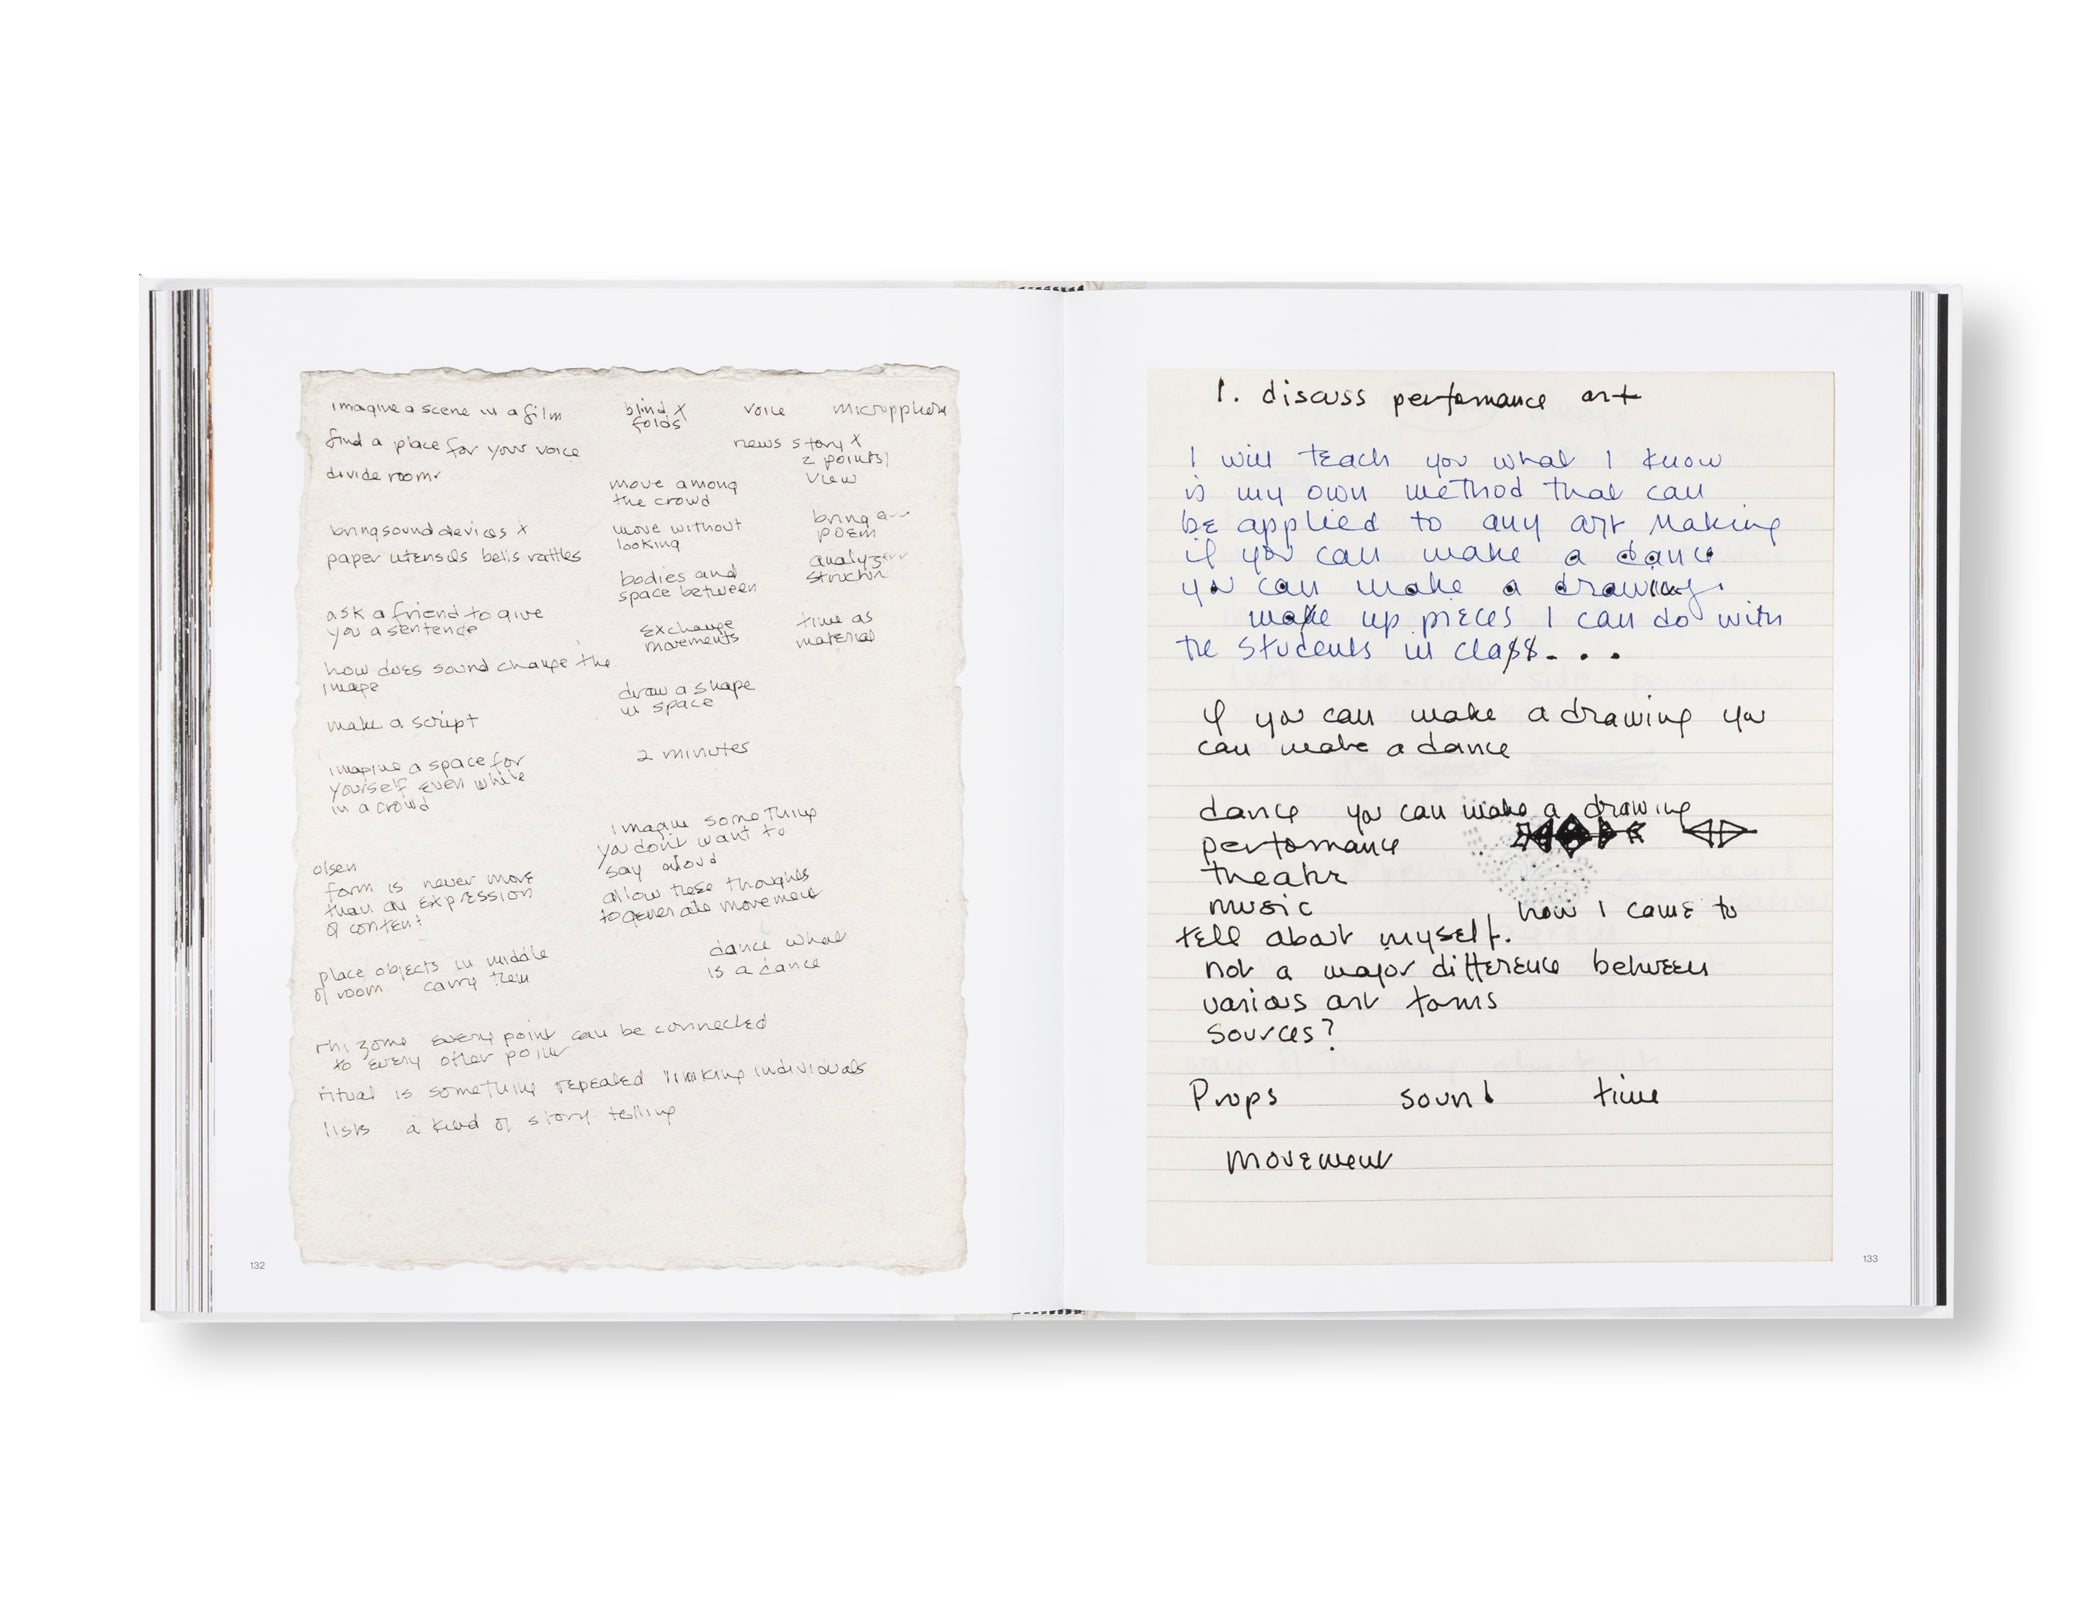 imagine a scene in a film
find a place for your voice
divide room
bring sound devices x
paper utensils bells rattles
ask a friend to give
you a sentence
how does sound change the
image
make a script
imagine a space for
yourself even while
in a crowd
olsen
form is never more
than an expression
of content
place objects in middle
of room carry them
blind x
folds
voice
micropphone
news story x
2 points
view
move among
the crowd
move without
looking
bring a
poem
bodies and
space between
analyze
structure
exchange
movements
time as
material
draw a shape
in space
2 minutes
imagine something
you don't want to
say aloud
allow these thoughts
to generate movement
dance what
is a dance
rhizome every point can be connected
to every other point
ritual is something repeated linking individuals
lists a kind of story telling
132
1. discuss performance art
I will teach you what I know
is my own method that can
be applied to any art making
if you can make a dance
you can make a drawing.
make up pieces I can do with
the students in class...
if you can make a drawing you
can make a dance
dance you can make a drawing
performance
theatre
music how I came to
tell about myself.
not a major difference between
various art forms
sources?
Props sound time
movement
133